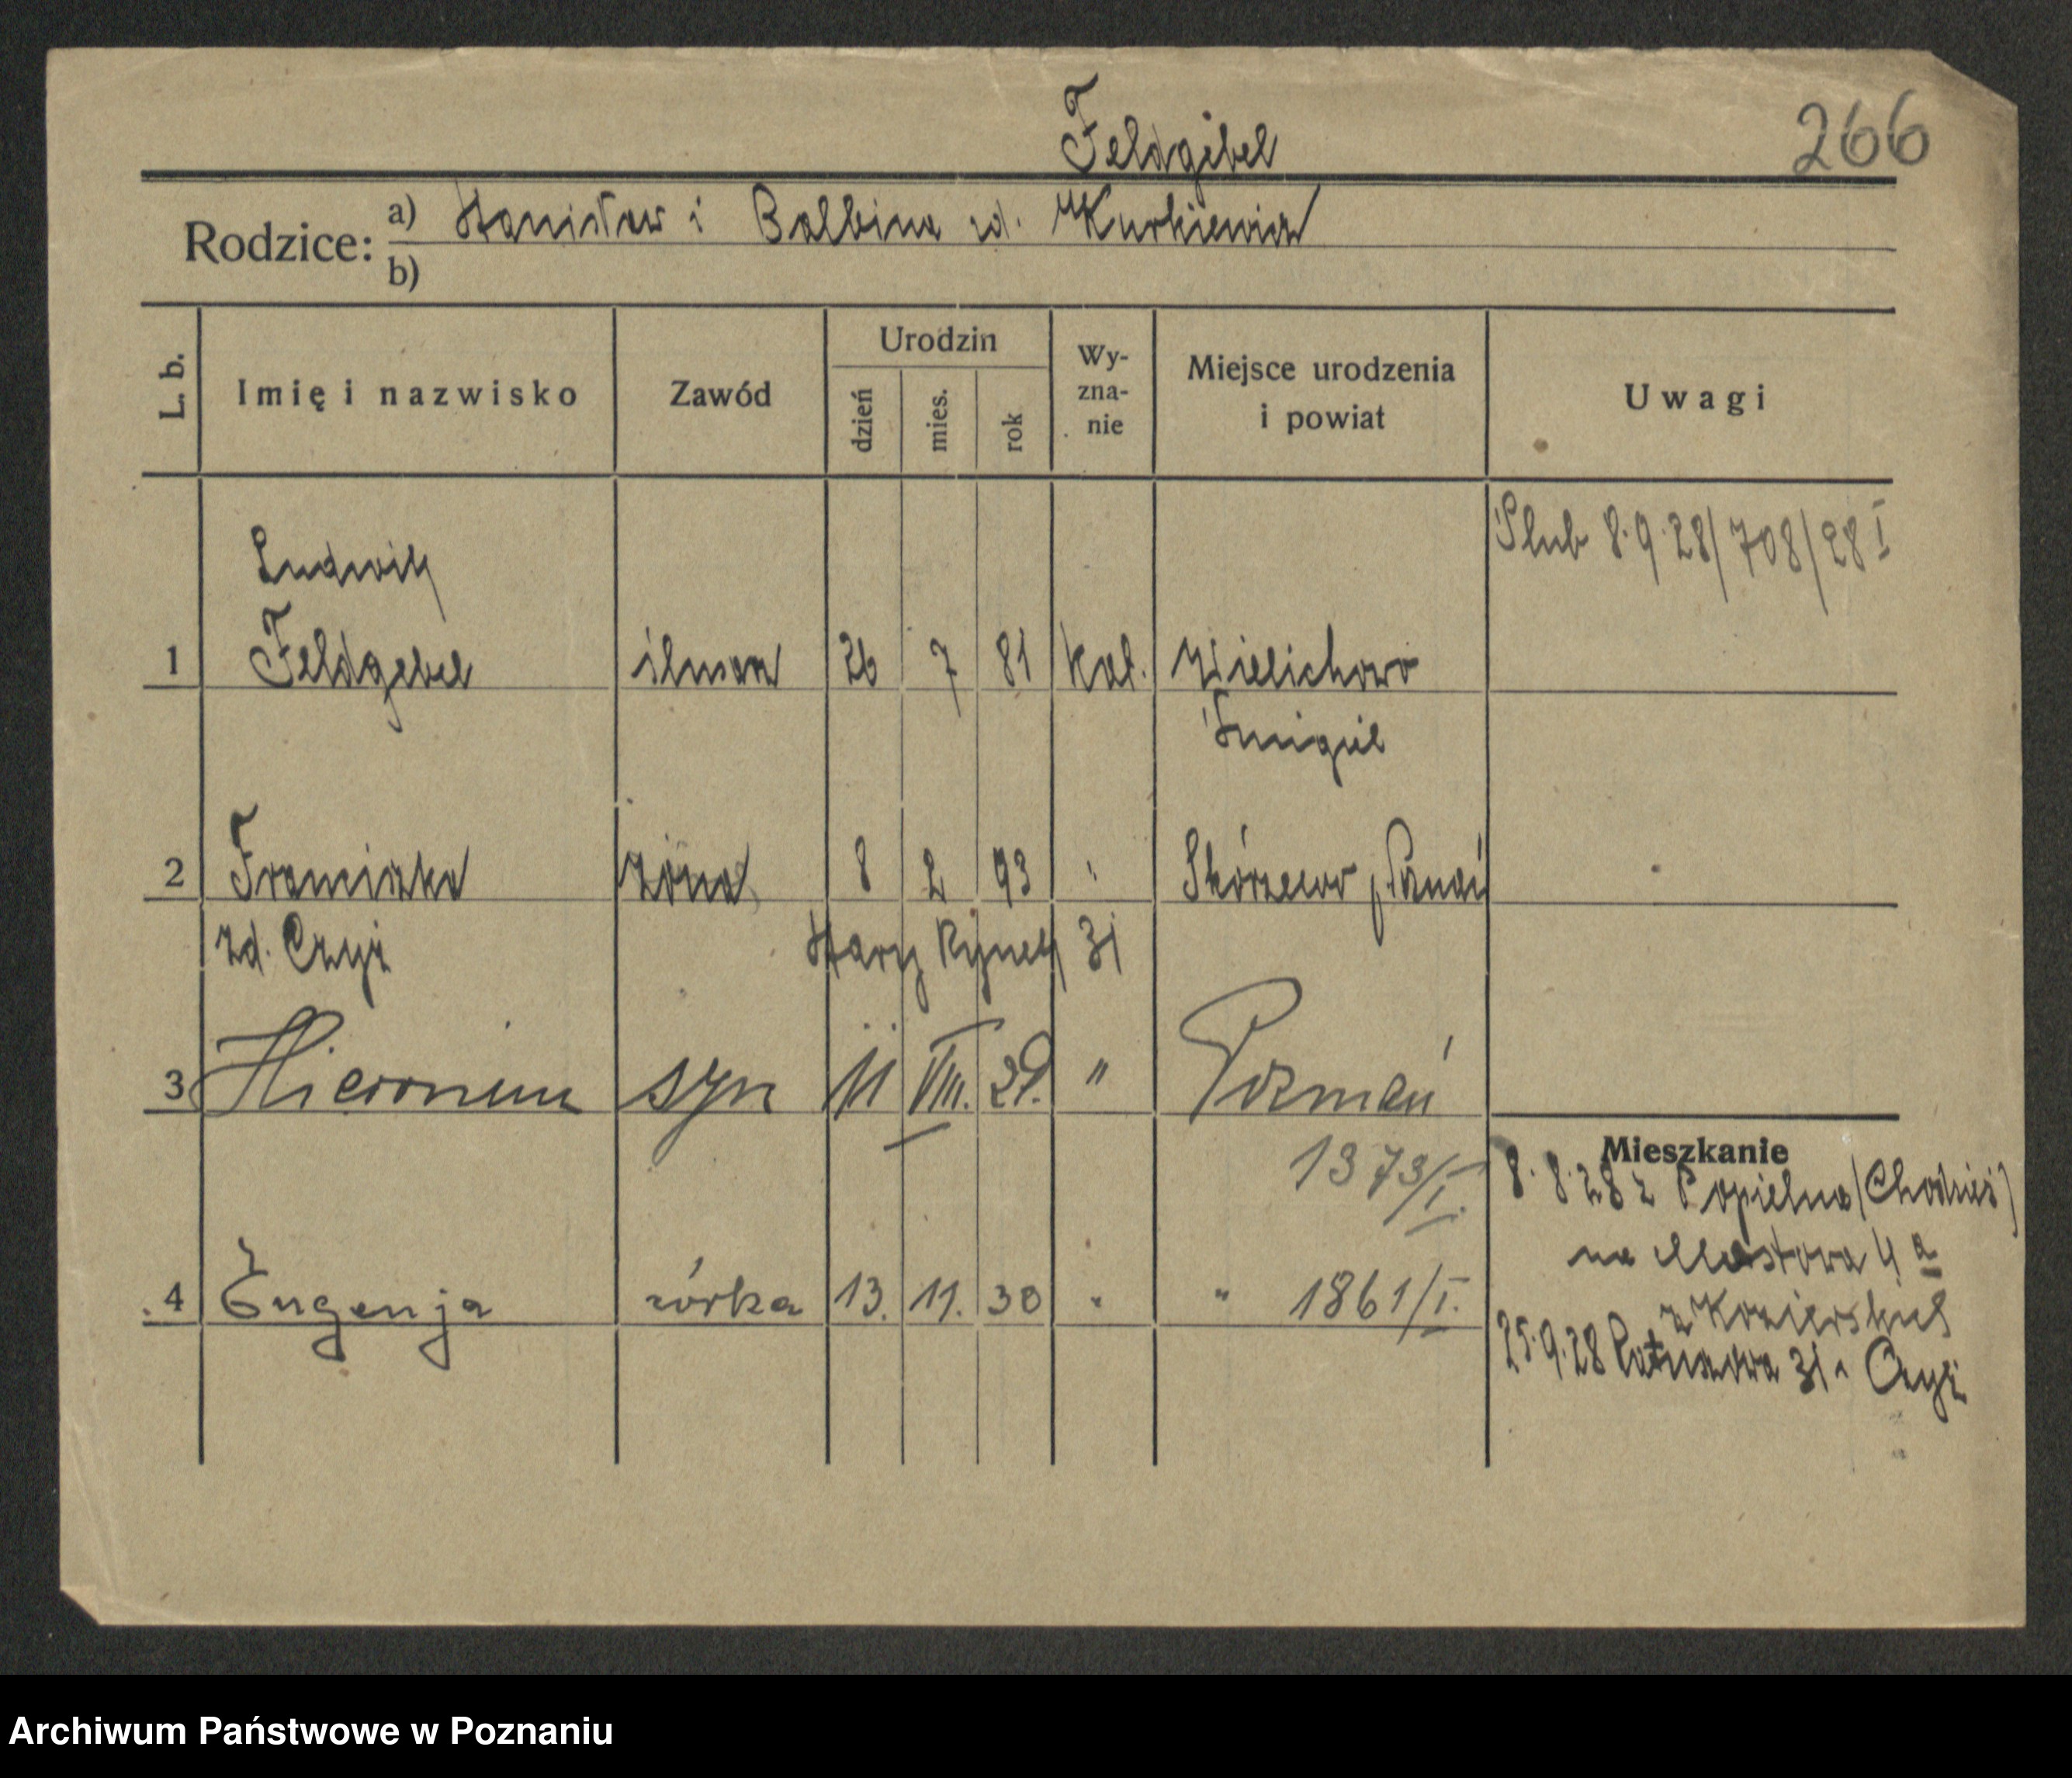 Feldgibel
266
Rodzice: a) Stanisław i Balbina zd. Kurkiewicz
b)
L. b.
Imię i nazwisko
Zawód
Urodzin
dzień
mies.
rok
Wy-
zna-
nie
Miejsce urodzenia
i powiat
Uwagi
Ślub 8.9.28/708/28 I
Ludwik
1 Feldgebel 26 7 81 kat. Wielichowo
Śmigiel
2 Franciszka żona 8 2 93 " Skórzewo p. Poznań
zd. Czyż Stary Rynek 31
3 Hieronim syn 11 VIII. 29. " Poznań
1373/I.
Mieszkanie
8.8.28 z Popielna (Chodzież)
na Mostowa 4 a
z Kozierskich
4 Eugenja córka 13. 11. 30 " " 1861/I.
25.9.28 Ratuszowa 31 Czyż
Archiwum Państwowe w Poznaniu